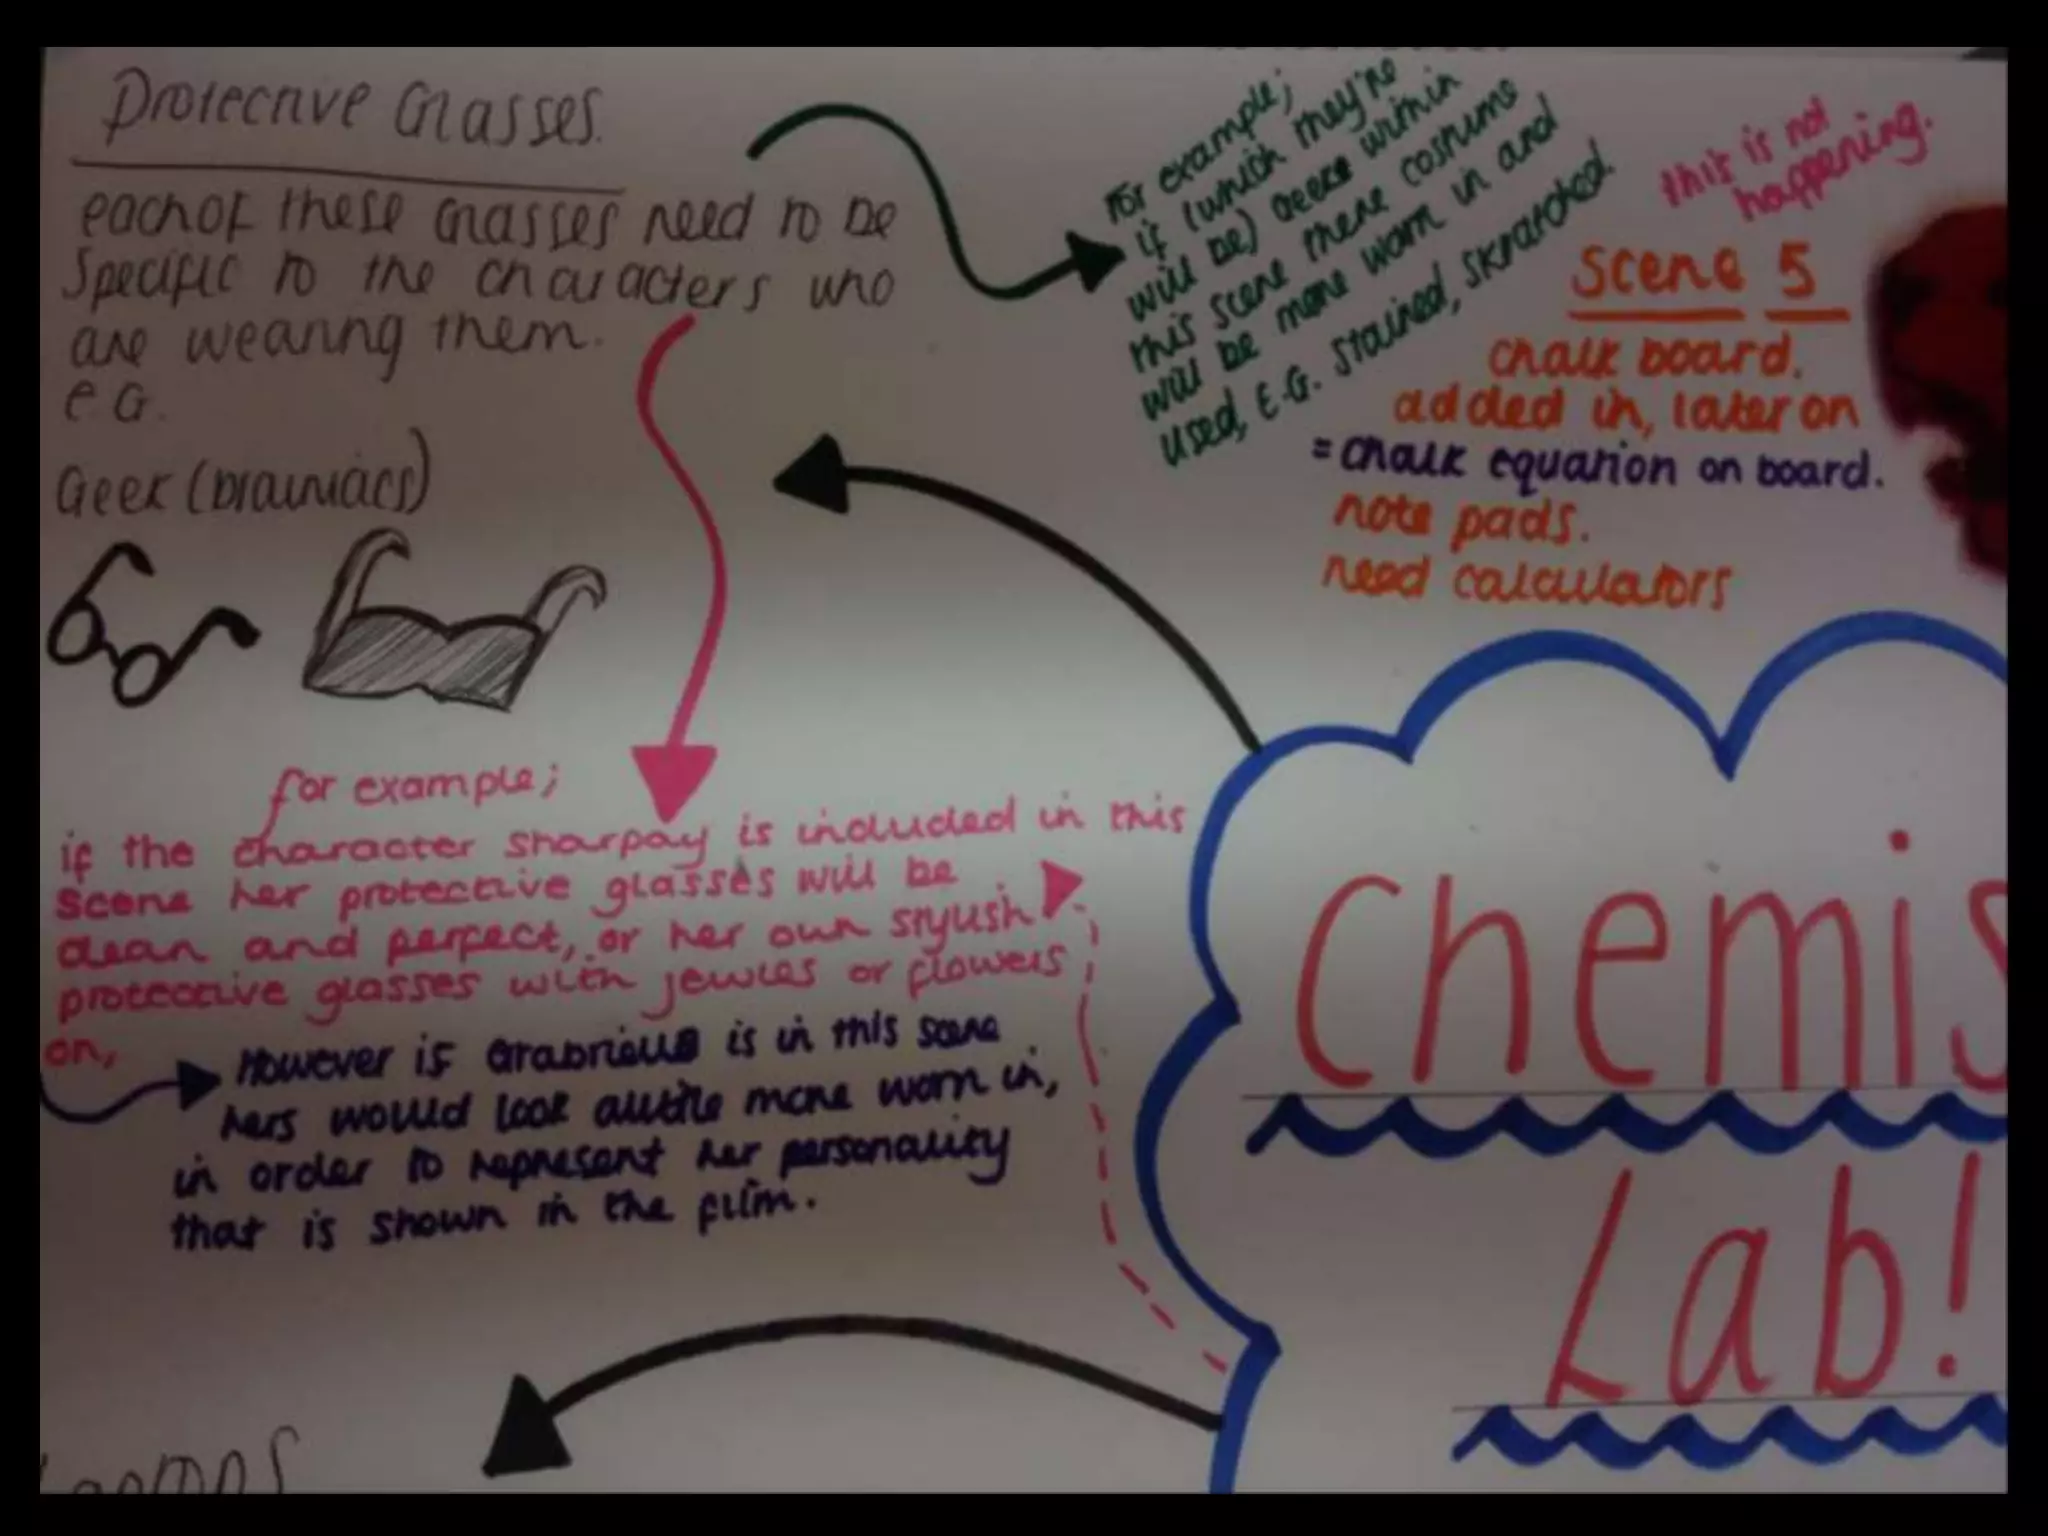 Protective Glasses.
each of these Glasses need to be
specific to the characters who
are wearing them.
e.G.
Geek (brainiacs)
For example;
if (which they're
will be) Geeks within
this scene there costume
will be more worn in and
used, E.G. stained, skratched.
this is not
happening.
Scene 5
chalk board.
added in, later on
= chalk equation on board.
note pads.
need calculators
for example;
if the character sharpay is included in this
scene her protective glasses will be
clean and perfect, or her own stylish
protective glasses with jewles or flowers
on,
However if Grabriella is in this scene
hers would look alittle more worn in,
in order to represent her personality
that is shown in the film.
Chemis
Lab!